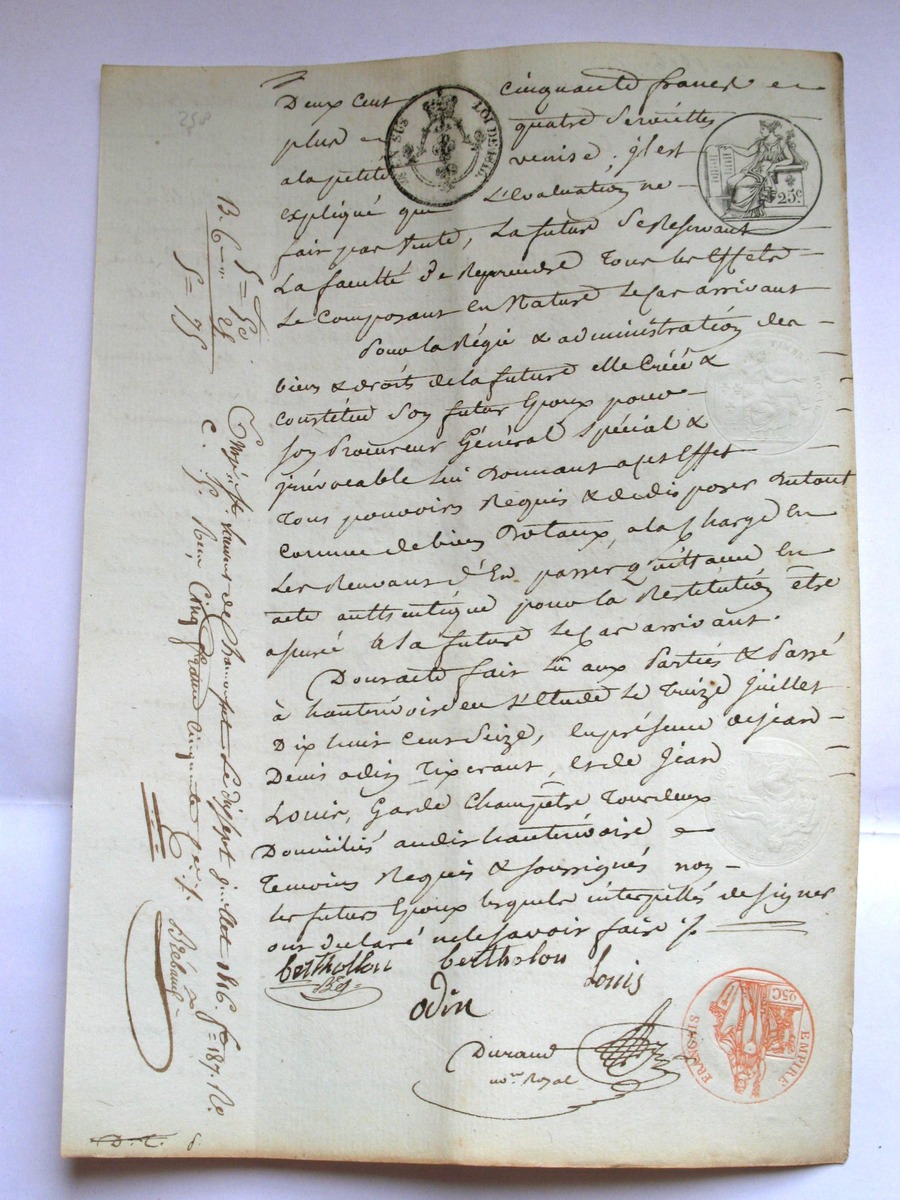 Deux cent cinquante francs en
plus en quatre serviettes
a la petite venise ; il est
expliqué que L'evaluation ne
fair pas vente, La future Se Reservant
La faculté de Reprendre Tous les Effets
Le Composant en Nature le Cas arrivant
Pour la Régie & administration des
biens & droits de la future elle Créé &
constitue Son futur Epoux pour
Son Procureur Général Spécial &
irrévocable lui Donnant a cet Effet
Tous pouvoirs Requis &
Comme de biens Dotaux, a la charge en
Les Recevant d'En passer quittance en
acte authentique pour la Restitution être
a la future le Cas arrivant.
Dont acte fait Lû aux Parties & Passé
à hauterivoire en L'Etude le Treize Juillet
Dix huit Cent Seize, En présence de jean
Denis odin Tixerant, et de Jean
Louis, Garde Champêtre Tous deux
Domiciliés audit hauterivoire
Temoins Requis & soussignés non
les futurs Epoux lesquels interpellés de signer
ont declaré ne le savoir faire ./.
berthollon bertholon Louis
odin
Durand
no.re Royal
LOI DE
25c
EMPIRE FRANÇAIS
25C
258
5 = 50
B. C. 25
5 = 75
le dixsept juillet 1816. f° 187. Ro.
C. 5. Reçu Cinq francs cinquante
D. T. 8